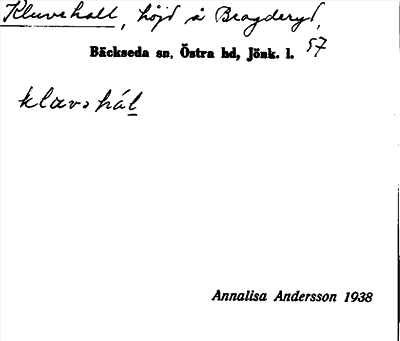 Kluvehall, höjd å Bragderyd,
Bäckseda sn, Östra hd, Jönk. l. 57
klavəhál
Annalisa Andersson 1938